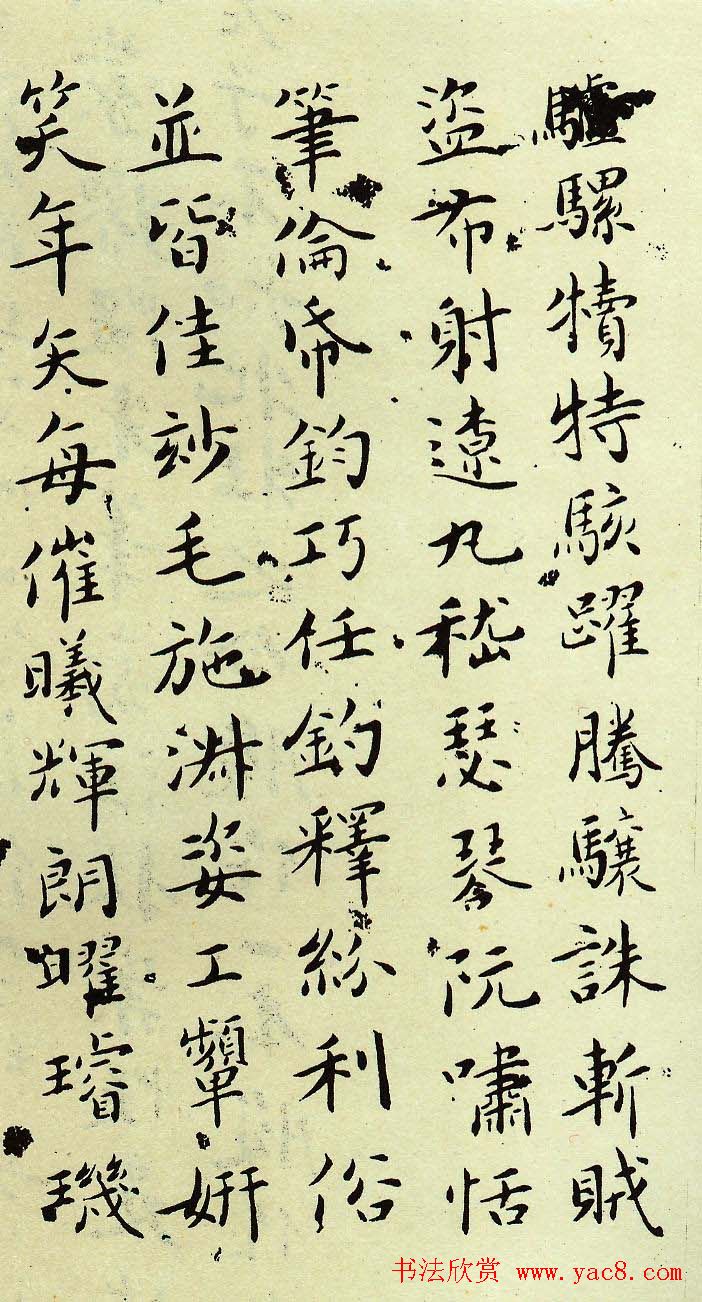 驢騾犢特駭躍騰驤誅斬賊
盜布射遼丸嵇瑟琴阮嘯恬
筆倫帋鈞巧任釣釋紛利俗
並皆佳玅毛施淑姿工顰妍
笑年矢每催曦輝朗曜璿璣
书法欣赏 www.yac8.com